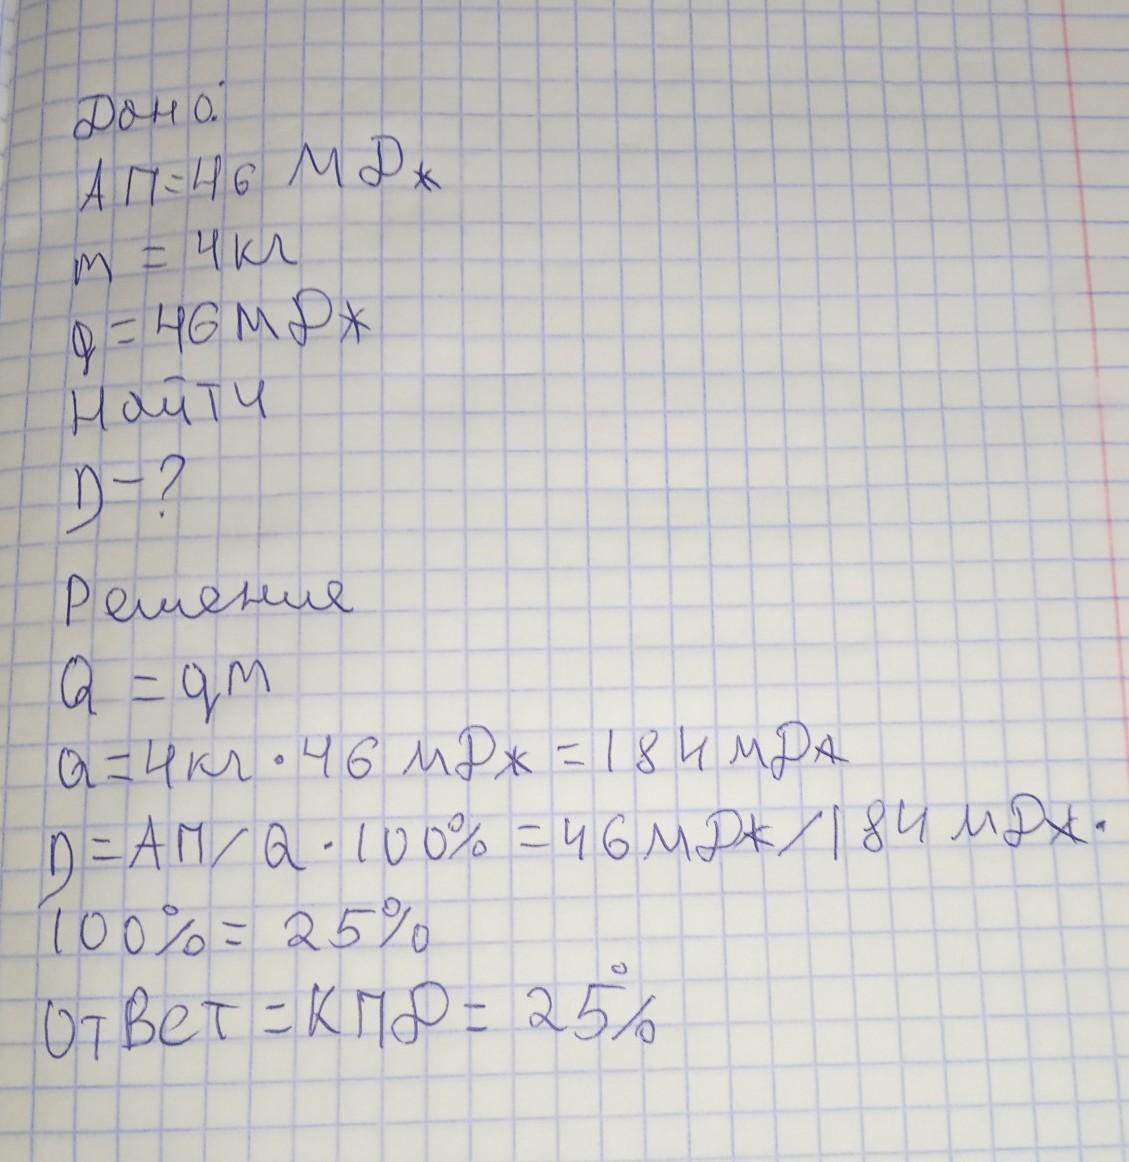 Дано:
АП=46 МДж
m = 4кг
q = 46 МДж
Найти
η-?
Решение
Q = qm
Q=4кг·46 МДж =184 МДж
η=АП/Q·100% =46МДж/184 МДж·
100%= 25%
Ответ =КПД= 25%